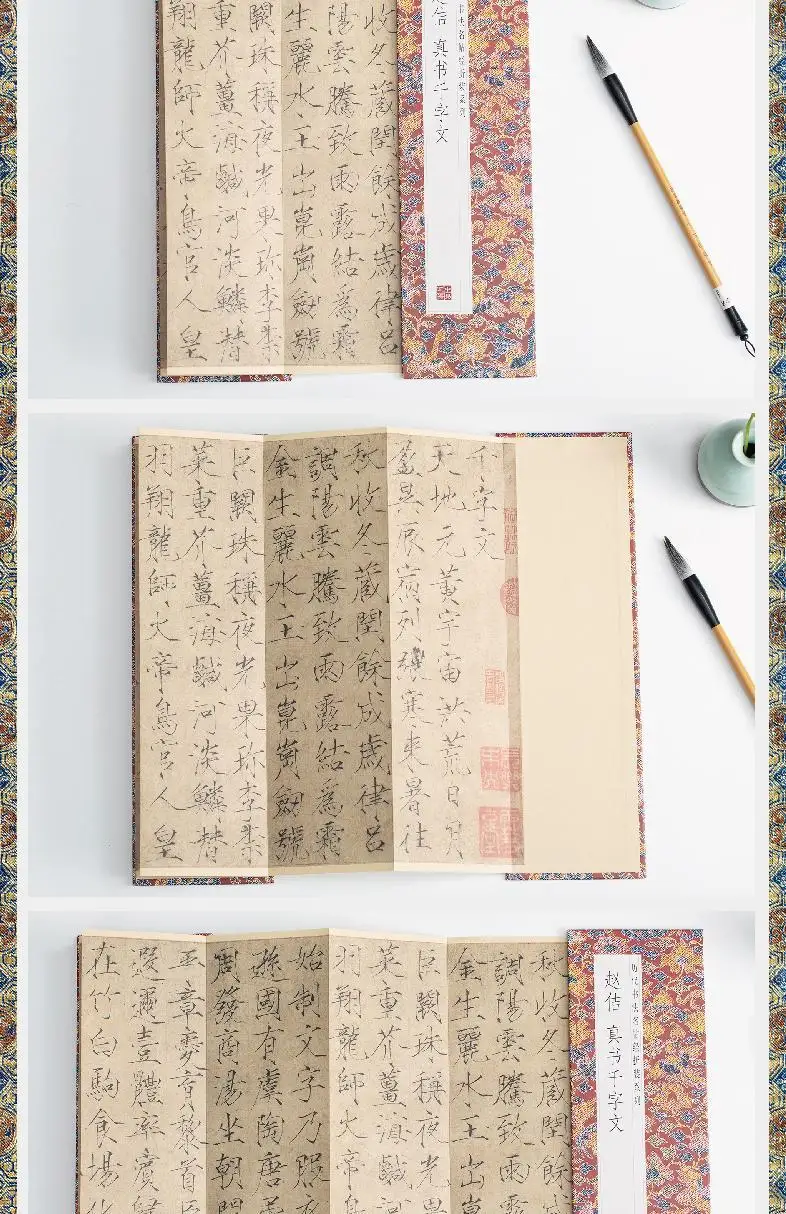 书法名帖经折装系列
佶 真书千字文
收冬藏閏餘成歲律呂
陽雲騰致雨露結為霜
生麗水玉出崑岡劍號
闕珠稱夜光果珍李柰
重芥薑海鹹河淡鱗潛
翔龍師火帝鳥官人皇
千字文
天地元黃宇宙洪荒日月
盈昃辰宿列張寒來暑往
秋收冬藏閏餘成歲律呂
調陽雲騰致雨露結為霜
金生麗水玉出崑岡劍號
巨闕珠稱夜光果珍李柰
菜重芥薑海鹹河淡鱗潛
羽翔龍師火帝鳥官人皇
历代书法名帖经折装系列
赵佶 真书千字文
秋收冬藏閏餘成
調陽雲騰致雨露
金生麗水玉出崑
巨闕珠稱夜光果
菜重芥薑海鹹河
羽翔龍師火帝鳥
始制文字乃服衣
遜國有虞陶唐
周發商湯坐朝問
平章愛育黎首臣
遐邇壹體率賓歸
在竹白駒食場化